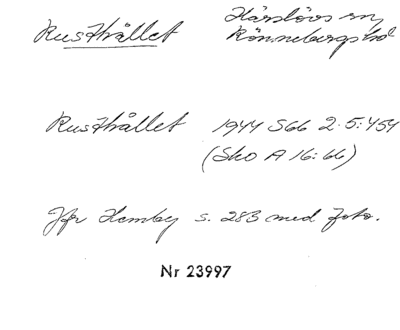 Rusthållet Härslövs sn,
Rönnebergs hd
Rusthållet 1944 S66 2.5:454
(Sko A 16:66)
Jfr Hemby s. 283 med foto.
Nr 23997